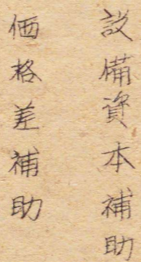 設備資本補助
価格差補助